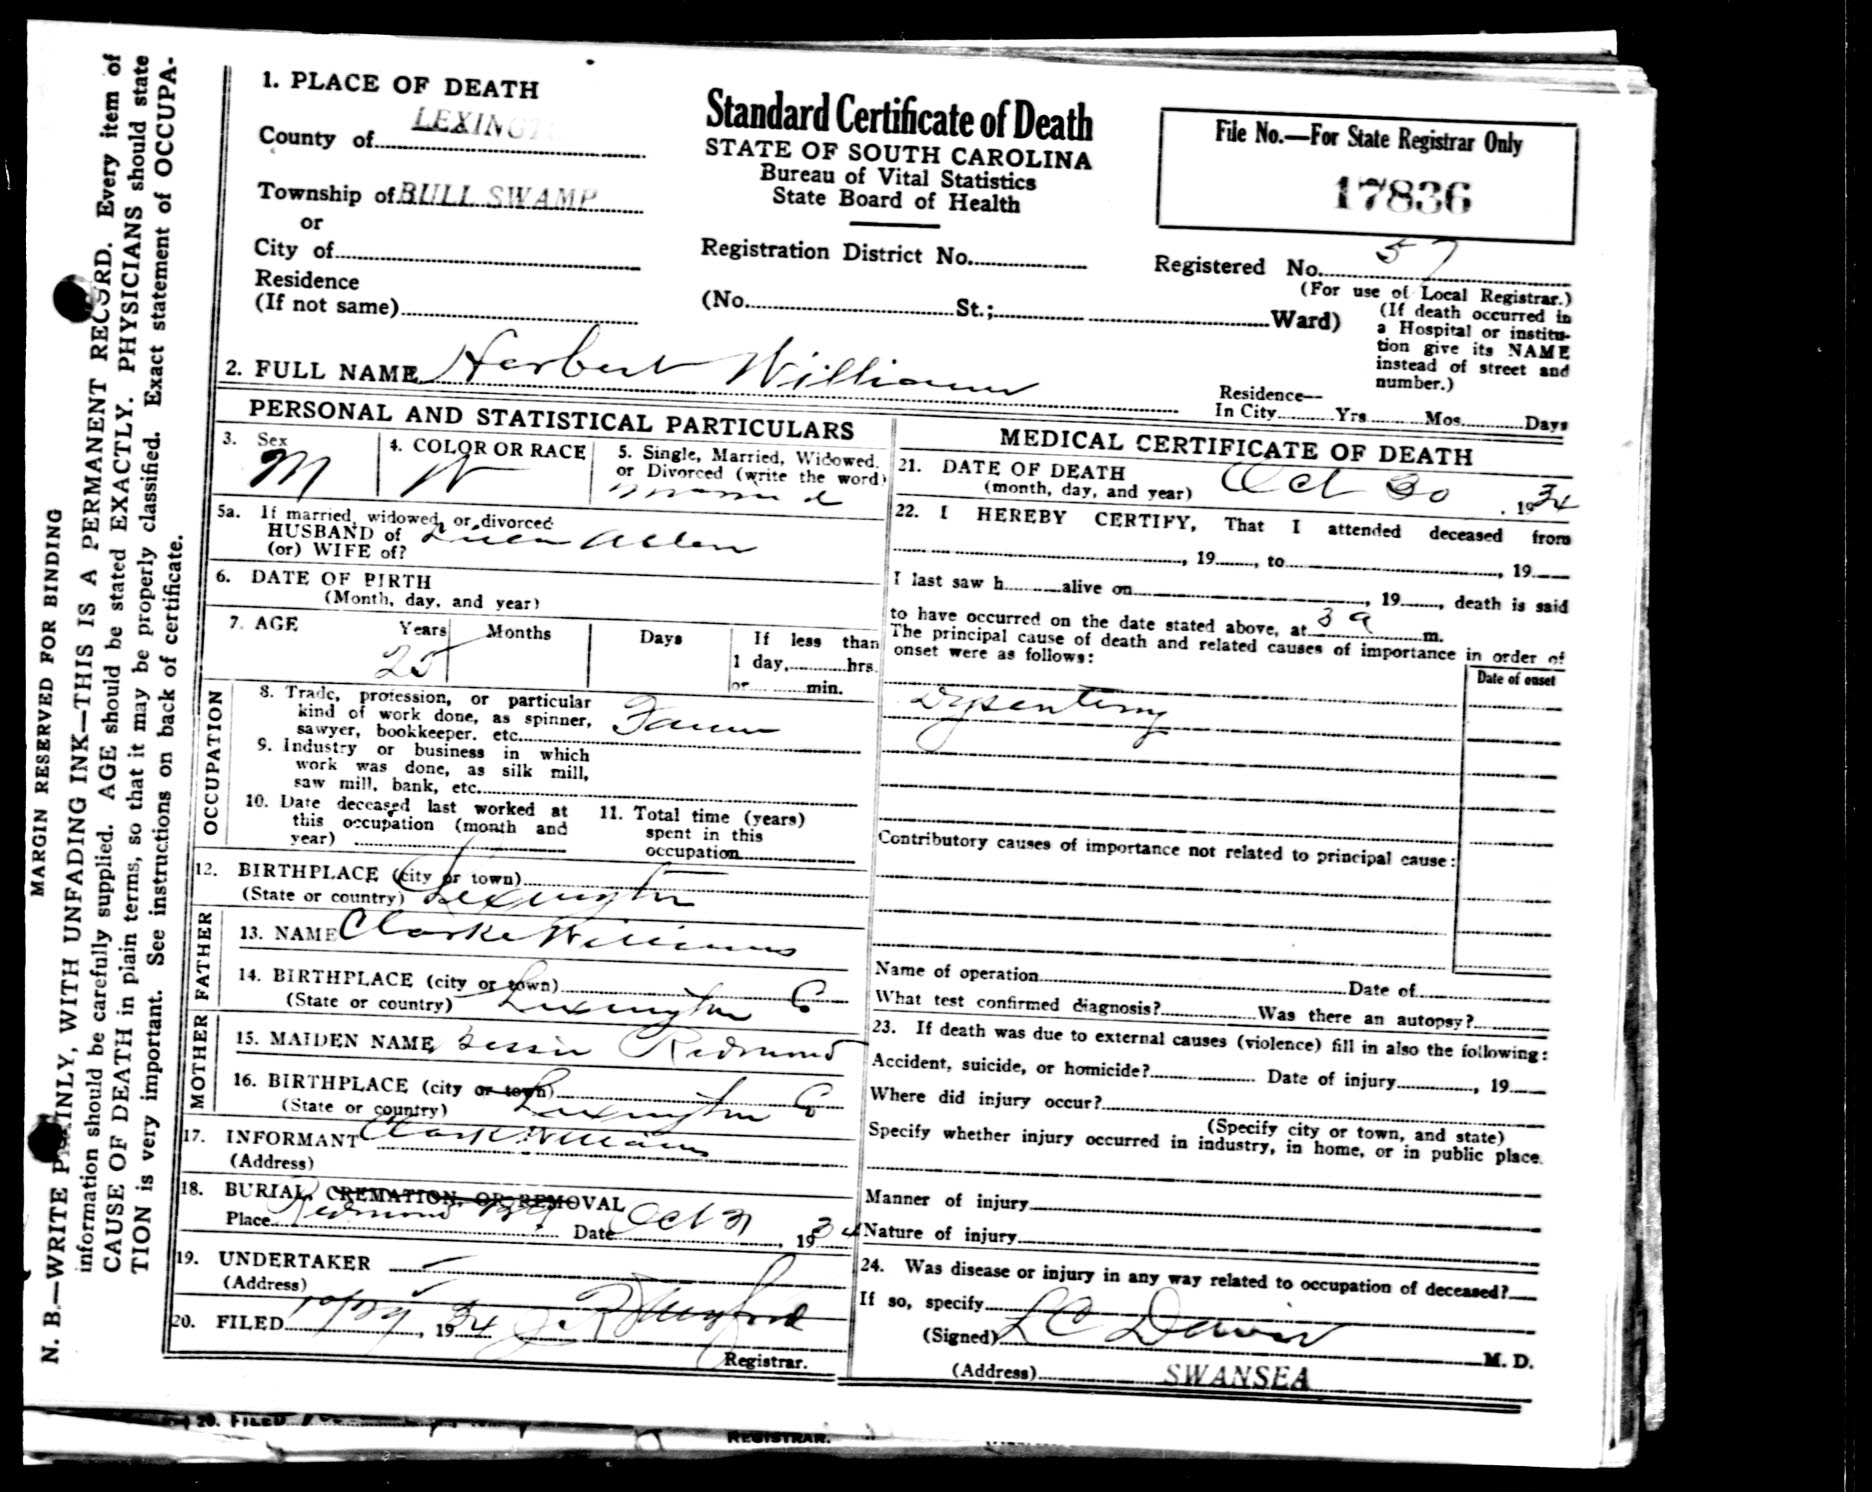 MARGIN RESERVED FOR BINDING
N. B.—WRITE PLAINLY, WITH UNFADING INK—THIS IS A PERMANENT RECORD. Every item of
information should be carefully supplied. AGE should be stated EXACTLY. PHYSICIANS should state
CAUSE OF DEATH in plain terms, so that it may be properly classified. Exact statement of OCCUPA-
TION is very important. See instructions on back of certificate.
1. PLACE OF DEATH
County of LEXINGTO
Township of BULL SWAMP
or
City of
Residence
(If not same)
Standard Certificate of Death
STATE OF SOUTH CAROLINA
Bureau of Vital Statistics
State Board of Health
Registration District No.
(No. St.; Ward)
File No.—For State Registrar Only
17836
Registered No. 57
(For use of Local Registrar.)
(If death occurred in
a Hospital or institu-
tion give its NAME
instead of street and
number.)
2. FULL NAME Herbert Williams
Residence—
In City Yrs Mos. Days
PERSONAL AND STATISTICAL PARTICULARS
3. Sex
M
4. COLOR OR RACE
W
5. Single, Married, Widowed,
or Divorced (write the word)
Married
5a. If married, widowed, or divorced
HUSBAND of Allen
(or) WIFE of?
6. DATE OF BIRTH
(Month, day, and year)
7. AGE Years Months Days If less than
1 day, hrs.
or min.
25
OCCUPATION
8. Trade, profession, or particular
kind of work done, as spinner,
sawyer, bookkeeper, etc. Farmer
9. Industry or business in which
work was done, as silk mill,
saw mill, bank, etc.
10. Date deceased last worked at
this occupation (month and
year)
11. Total time (years)
spent in this
occupation
12. BIRTHPLACE (city or town)
(State or country) Lexington
FATHER
13. NAME Clarke Williams
14. BIRTHPLACE (city or town)
(State or country) Lexington Co
MOTHER
15. MAIDEN NAME Bessie Redmond
16. BIRTHPLACE (city or town)
(State or country) Lexington Co
17. INFORMANT Clark Williams
(Address)
18. BURIAL, CREMATION, OR REMOVAL
Place Redmond Date Oct 31, 1934
19. UNDERTAKER
(Address)
20. FILED , 1934
Registrar.
MEDICAL CERTIFICATE OF DEATH
21. DATE OF DEATH
(month, day, and year) Oct 30, 1934
22. I HEREBY CERTIFY, That I attended deceased from
, 19 , to , 19
I last saw h alive on , 19 , death is said
to have occurred on the date stated above, at 3 a m.
The principal cause of death and related causes of importance in order of
onset were as follows:
Date of onset
Dysentery
Contributory causes of importance not related to principal cause:
Name of operation Date of
What test confirmed diagnosis? Was there an autopsy?
23. If death was due to external causes (violence) fill in also the following:
Accident, suicide, or homicide? Date of injury , 19
Where did injury occur?
(Specify city or town, and state)
Specify whether injury occurred in industry, in home, or in public place.
Manner of injury
Nature of injury
24. Was disease or injury in any way related to occupation of deceased?
If so, specify
(Signed) L C Davis M. D.
(Address) SWANSEA
20. FILED
REGISTRAR.